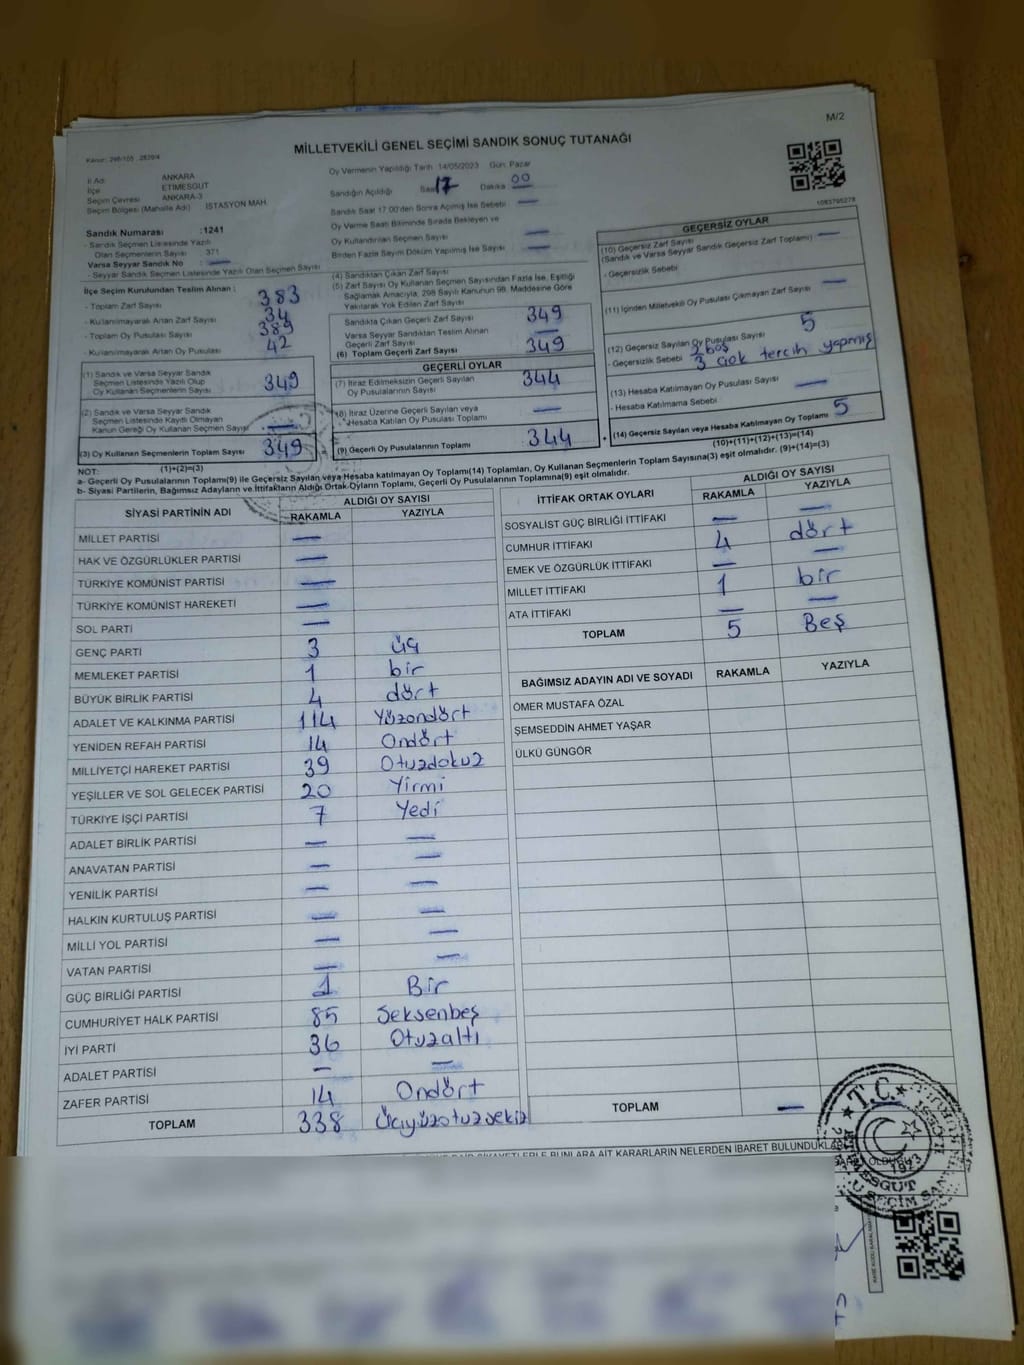 M/2
MİLLETVEKİLİ GENEL SEÇİMİ SANDIK SONUÇ TUTANAĞI
İl Adı ANKARA
İlçe ETİMESGUT
Seçim Çevresi ANKARA-3
Seçim Bölgesi (Mahalle Adı) İSTASYON MAH.
Sandık Numarası : 1241
- Sandık Seçmen Listesinde Yazılı
Olan Seçmenlerin Sayısı 371
Varsa Seyyar Sandık No : —
- Seyyar Sandık Seçmen Listesinde Yazılı Olan Seçmen Sayısı
İlçe Seçim Kurulundan Teslim Alınan ;
- Toplam Zarf Sayısı 383
- Kullanılmayarak Artan Zarf Sayısı 34
- Toplam Oy Pusulası Sayısı 389
- Kullanılmayarak Artan Oy Pusulası 42
(1) Sandık ve Varsa Seyyar Sandık
Seçmen Listesinde Yazılı Olup
Oy Kullanan Seçmenlerin Sayısı 349
(2) Sandık ve Varsa Seyyar Sandık
Seçmen Listesinde Kayıtlı Olmayan
Kanun Gereği Oy Kullanan Seçmen Sayısı —
(3) Oy Kullanan Seçmenlerin Toplam Sayısı 349
(1)+(2)=(3)
Oy Vermenin Yapıldığı Tarih 14/05/2023 Gün: Pazar
Sandığın Açıldığı Saat 17 Dakika 00
Sandık Saat 17:00'den Sonra Açılmış İse Sebebi —
Oy Verme Saati Bitiminde Sırada Bekleyen ve
Oy Kullandırılan Seçmen Sayısı —
Birden Fazla Sayım Döküm Yapılmış İse Sayısı —
(4) Sandıktan Çıkan Zarf Sayısı
(5) Zarf Sayısı Oy Kullanan Seçmen Sayısından Fazla İse, Eşitliği
Sağlamak Amacıyla, 298 Sayılı Kanunun 98. Maddesine Göre
Yakılarak Yok Edilen Zarf Sayısı
Sandıkta Çıkan Geçerli Zarf Sayısı 349
Varsa Seyyar Sandıktan Teslim Alınan
Geçerli Zarf Sayısı —
(6) Toplam Geçerli Zarf Sayısı 349
GEÇERLİ OYLAR
(7) İtiraz Edilmeksizin Geçerli Sayılan
Oy Pusulalarının Sayısı 344
(8) İtiraz Üzerine Geçerli Sayılan veya
Hesaba Katılan Oy Pusulası Toplamı —
(9) Geçerli Oy Pusulalarının Toplamı 344
1083795278
GEÇERSİZ OYLAR
(10) Geçersiz Zarf Sayısı —
(Sandık ve Varsa Seyyar Sandık Geçersiz Zarf Toplamı)
- Geçersizlik Sebebi
(11) İçinden Milletvekili Oy Pusulası Çıkmayan Zarf Sayısı —
(12) Geçersiz Sayılan Oy Pusulası Sayısı 5
- Geçersizlik Sebebi 2 boş
3 çok tercih yapmış
(13) Hesaba Katılmayan Oy Pusulası Sayısı —
- Hesaba Katılmama Sebebi
(14) Geçersiz Sayılan veya Hesaba Katılmayan Oy Toplamı 5
(10)+(11)+(12)+(13)=(14)
NOT:
a- Geçerli Oy Pusulalarının Toplamı(9) ile Geçersiz Sayılan veya Hesaba katılmayan Oy Toplamı(14) Toplamları, Oy Kullanan Seçmenlerin Toplam Sayısına(3) eşit olmalıdır. (9)+(14)=(3)
b- Siyasi Partilerin, Bağımsız Adayların ve İttifakların Aldığı Ortak Oyların Toplamı, Geçerli Oy Pusulalarının Toplamına(9) eşit olmalıdır.
SİYASİ PARTİNİN ADI ALDIĞI OY SAYISI
RAKAMLA YAZIYLA
MİLLET PARTİSİ —
HAK VE ÖZGÜRLÜKLER PARTİSİ —
TÜRKİYE KOMÜNİST PARTİSİ —
TÜRKİYE KOMÜNİST HAREKETİ —
SOL PARTİ —
GENÇ PARTİ 3 üç
MEMLEKET PARTİSİ 1 bir
BÜYÜK BİRLİK PARTİSİ 4 dört
ADALET VE KALKINMA PARTİSİ 114 Yüzondört
YENİDEN REFAH PARTİSİ 14 Ondört
MİLLİYETÇİ HAREKET PARTİSİ 39 Otuzdokuz
YEŞİLLER VE SOL GELECEK PARTİSİ 20 Yirmi
TÜRKİYE İŞÇİ PARTİSİ 7 Yedi
ADALET BİRLİK PARTİSİ — —
ANAVATAN PARTİSİ — —
YENİLİK PARTİSİ — —
HALKIN KURTULUŞ PARTİSİ — —
MİLLİ YOL PARTİSİ — —
VATAN PARTİSİ — —
GÜÇ BİRLİĞİ PARTİSİ 1 Bir
CUMHURİYET HALK PARTİSİ 85 Seksenbeş
İYİ PARTİ 36 Otuzaltı
ADALET PARTİSİ — —
ZAFER PARTİSİ 14 Ondört
TOPLAM 338 Üçyüzotuzsekiz
İTTİFAK ORTAK OYLARI ALDIĞI OY SAYISI
RAKAMLA YAZIYLA
SOSYALİST GÜÇ BİRLİĞİ İTTİFAKI — —
CUMHUR İTTİFAKI 4 dört
EMEK VE ÖZGÜRLÜK İTTİFAKI — —
MİLLET İTTİFAKI 1 bir
ATA İTTİFAKI — —
TOPLAM 5 Beş
BAĞIMSIZ ADAYIN ADI VE SOYADI RAKAMLA YAZIYLA
ÖMER MUSTAFA ÖZAL
ŞEMSEDDİN AHMET YAŞAR
ÜLKÜ GÜNGÖR
TOPLAM —
BUNLARA AİT KARARLARIN NELERDEN İBARET BULUNDUKLARI
T.C.
1923